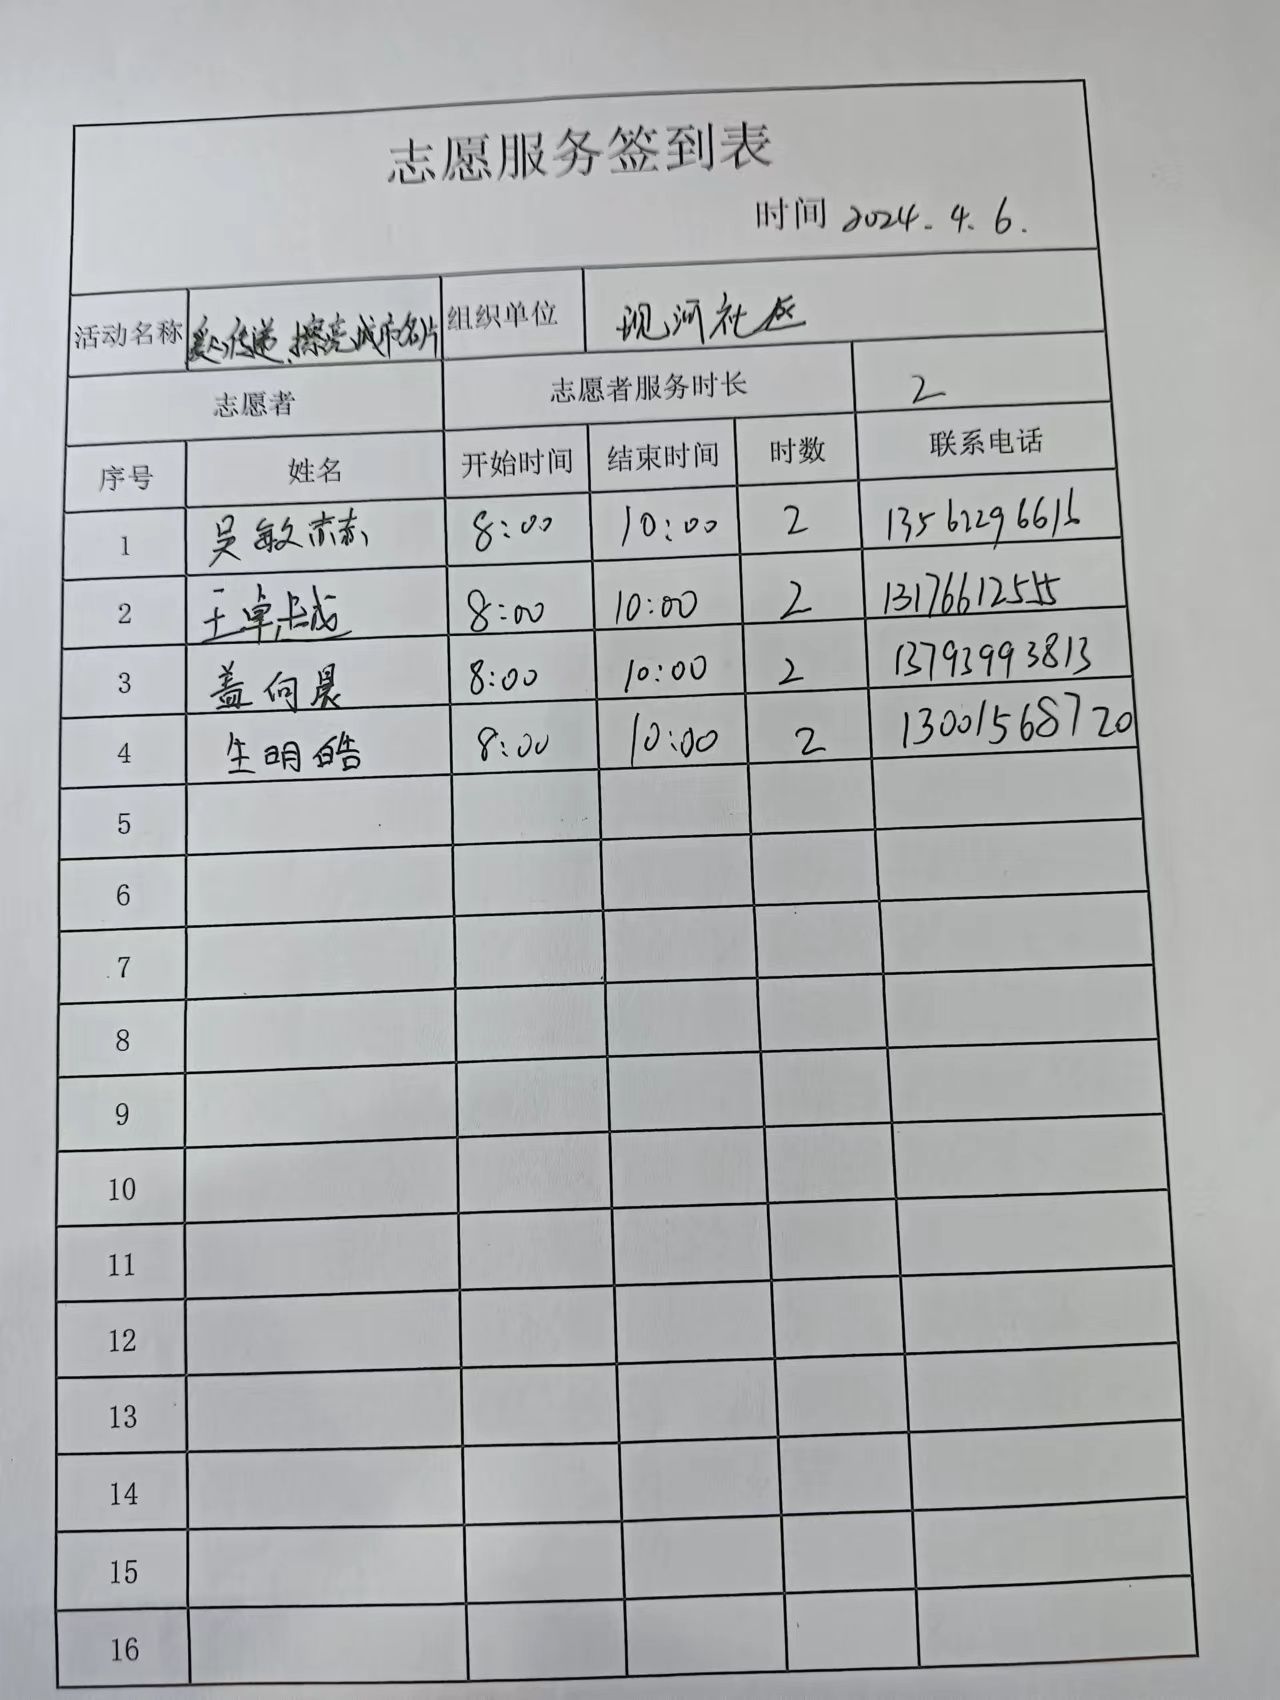 志愿服务签到表
时间 2024.4.6.
活动名称 爱心传递、擦亮城市名片 组织单位 现河社区
志愿者 志愿者服务时长 2
序号 姓名 开始时间 结束时间 时数 联系电话
1 吴敏赫 8:00 10:00 2 13562296616
2 王卓 8:00 10:00 2 13176612555
3 盖向晨 8:00 10:00 2 13793993813
4 生明皓 8:00 10:00 2 13001568720
5
6
7
8
9
10
11
12
13
14
15
16